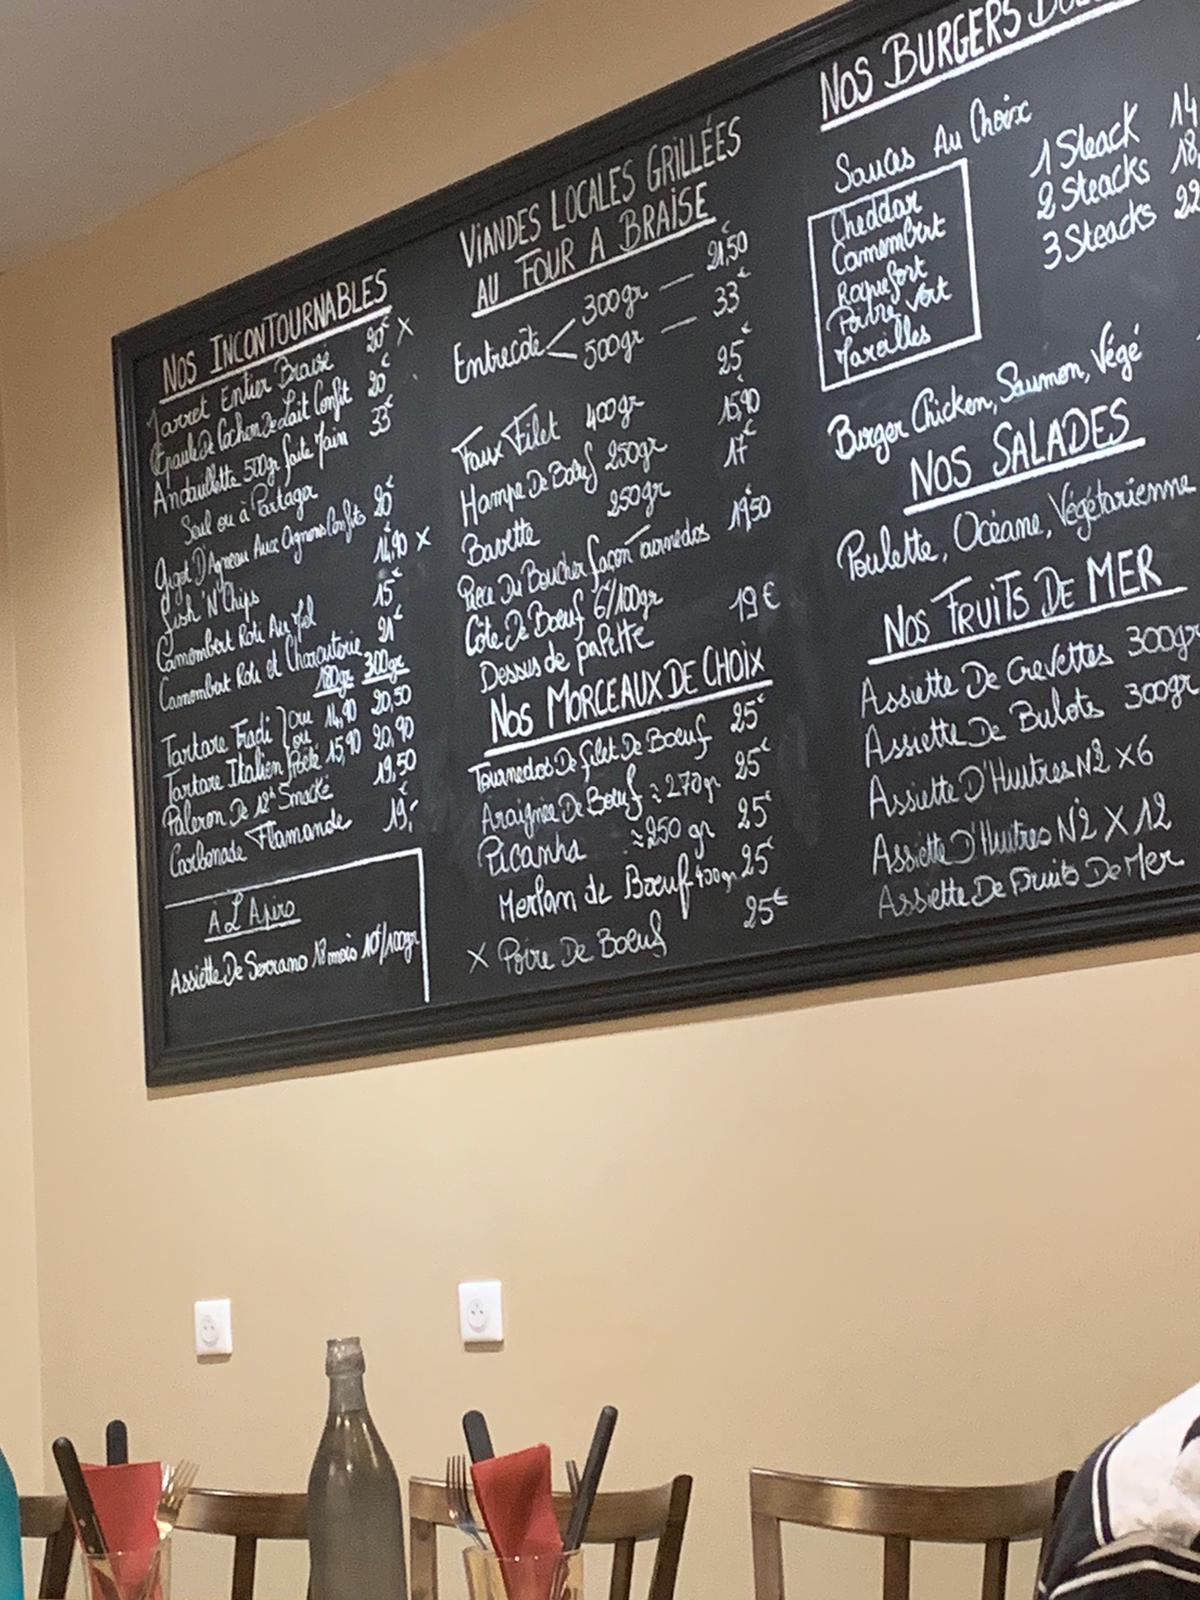 NOS INCONTOURNABLES
Jarret Entier Braisé 20€ X
Epaule De Cochon De Lait Confit 20€
Andouillette 500gr faite main 33€
Seul ou à Partager
Gigot D'Agneau Aux Oignons Confits 20€
Fish 'N' Chips 14,90€ X
Camembert Roti Au Miel 15€
Camembert Roti et Charcuterie 21€
180gr 300gr
Tartare Tradi ou 14,90 20,50
Tartare Italien ou Poêlé 15,90 20,90
Paleron De 12h Smocké 19,50
Carbonade Flamande 19€
À L'Apéro
Assiette De Serrano 18 mois 10€/100gr
VIANDES LOCALES GRILLÉES
AU FOUR A BRAISE
Entrecôte 300gr — 21,50€
500gr — 33€
Faux Filet 400gr 25€
Hampe De Bœuf 250gr 15,90€
Bavette 250gr 17€
Pièce Du Boucher façon Tournedos 19,50€
Côte De Bœuf 6€/100gr
Dessus de palette 19€
NOS MORCEAUX DE CHOIX
Tournedos De filet De Boeuf 25€
Araignée De Bœuf ≈ 270gr 25€
Picanha ≈250 gr 25€
Merlan de Bœuf 400gr 25€
X Poire De Bœuf 25€
NOS BURGERS
Sauces Au Choix
Cheddar
Camembert
Roquefort
Poivre Vert
Maroilles
1 Steack 14
2 Steacks 18,
3 Steacks 22
Burger Chicken, Saumon, Végé
NOS SALADES
Poulette, Océane, Végétarienne
NOS FRUITS DE MER
Assiette De Crevettes 300gr
Assiette De Bulots 300gr
Assiette D'Huitres N°2 X6
Assiette D'Huitres N°2 X 12
Assiette De Fruits De Mer